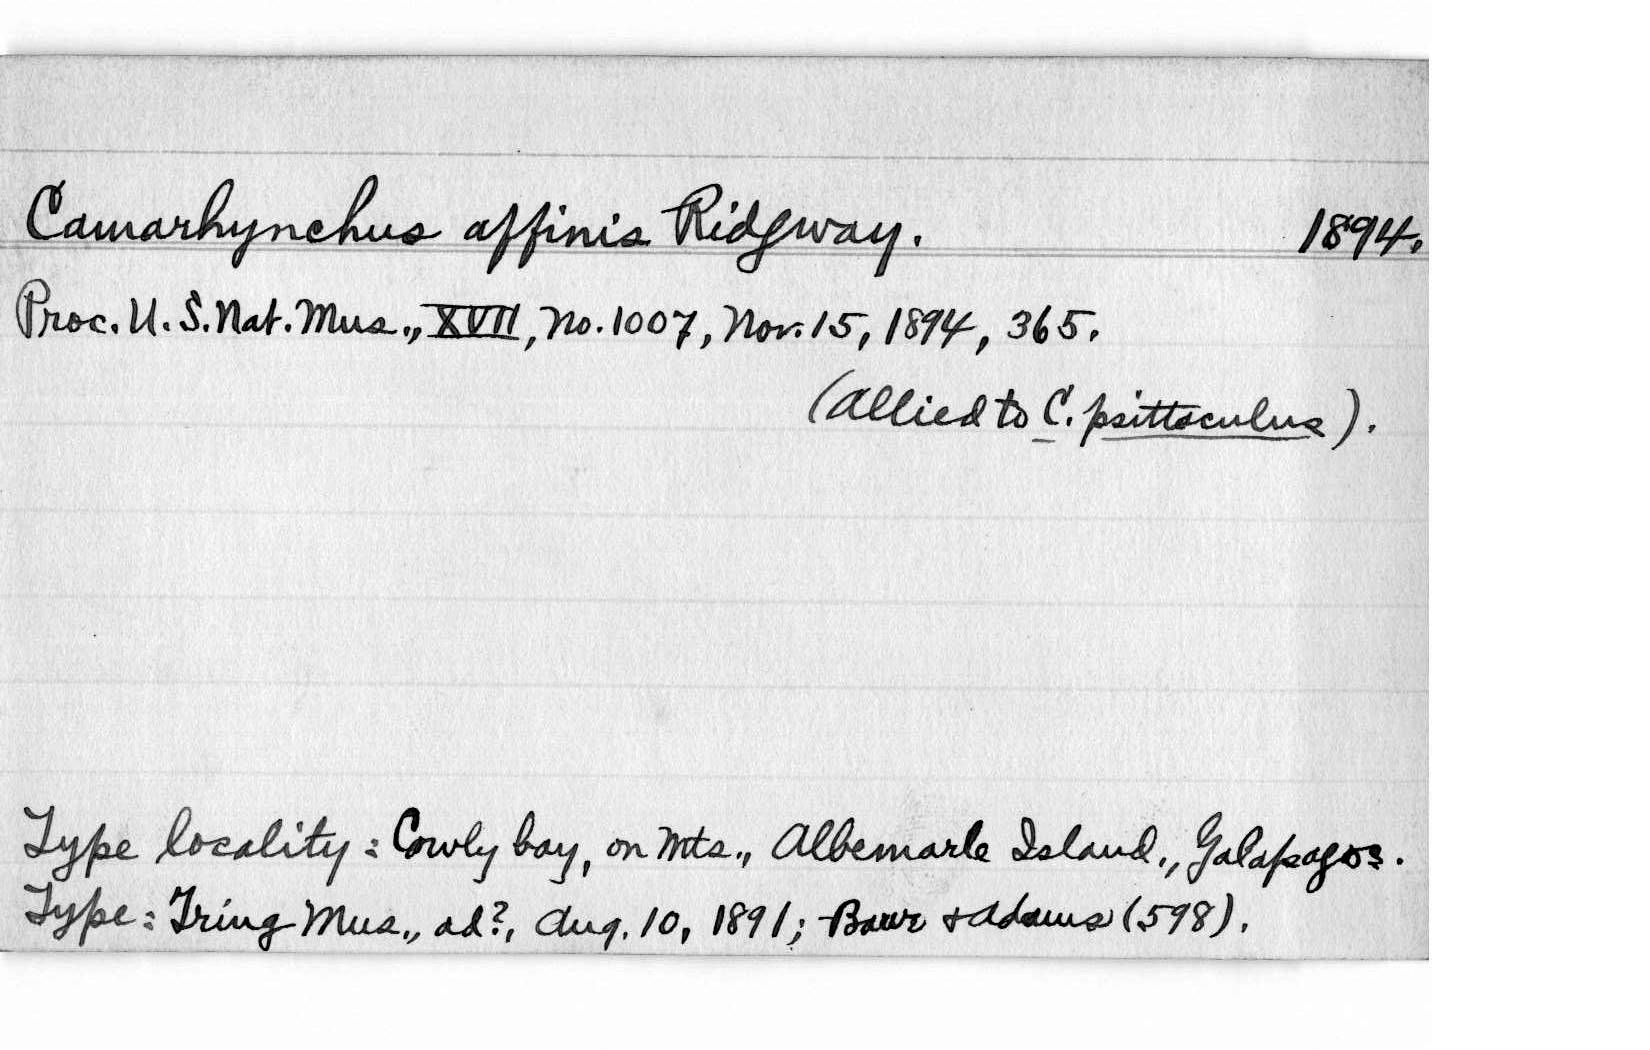 Camarhynchus affinis Ridgway. 1894.
Proc. U. S. Nat. Mus., XVII, No. 1007, Nov. 15, 1894, 365.
(Allied to C. psittaculus).
Type locality: Cowly bay, on Mts., Albemarle Island., Galapagos.
Type: Tring Mus., ad?, Aug. 10, 1891; Baur & Adams (598).